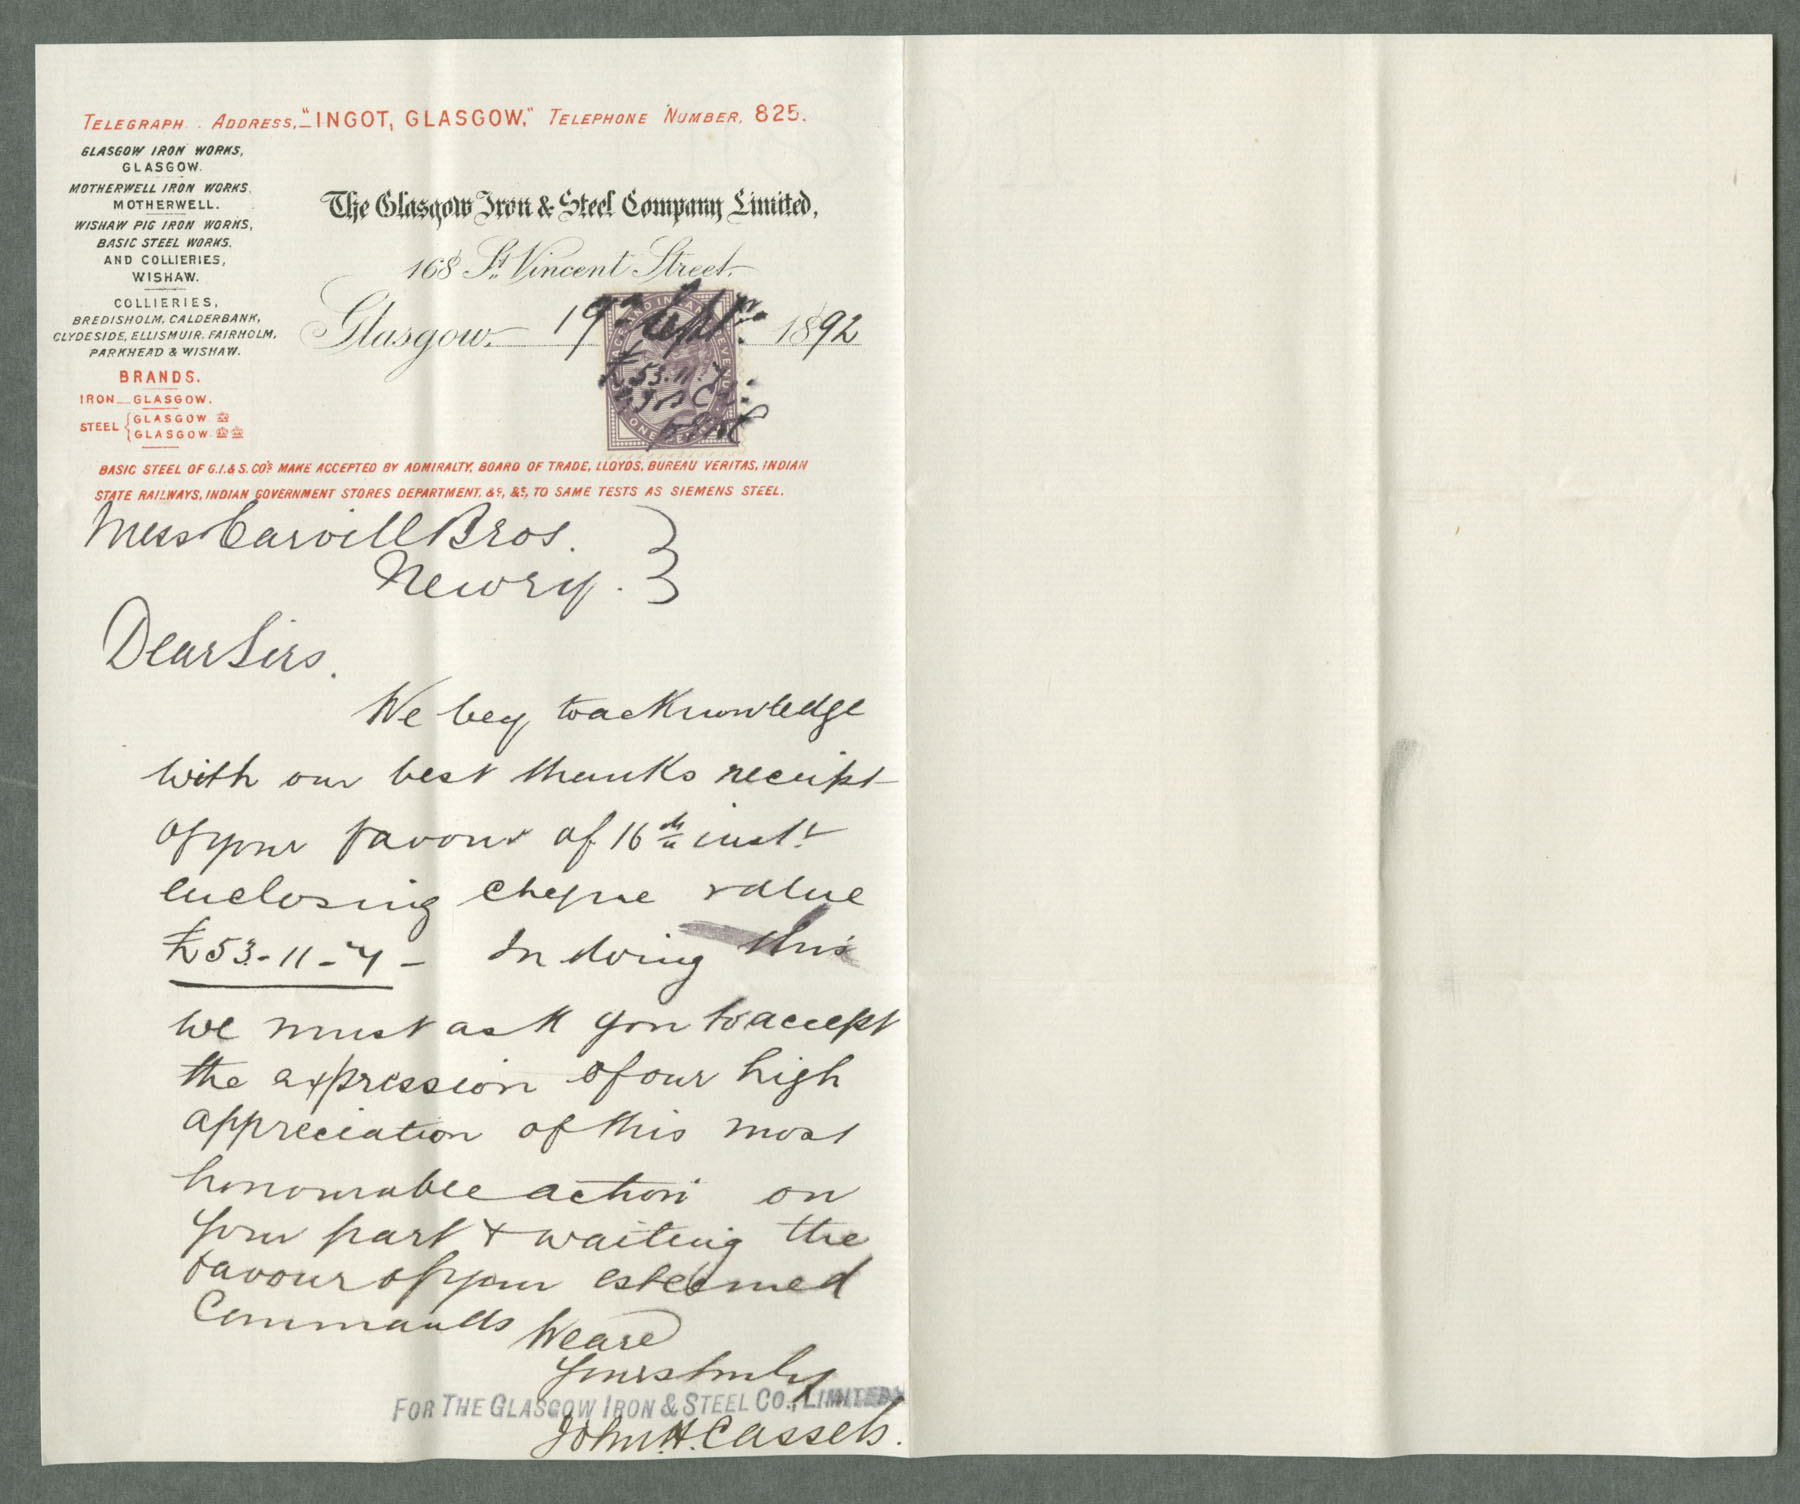 TELEGRAPH ADDRESS, "INGOT, GLASGOW," TELEPHONE NUMBER, 825.
GLASGOW IRON WORKS,
GLASGOW.
MOTHERWELL IRON WORKS,
MOTHERWELL.
WISHAW PIG IRON WORKS,
BASIC STEEL WORKS,
AND COLLIERIES,
WISHAW.
COLLIERIES,
BREDISHOLM, CALDERBANK,
CLYDESIDE, ELLISMUIR, FAIRHOLM,
PARKHEAD & WISHAW.
BRANDS.
IRON — GLASGOW.
STEEL { GLASGOW
GLASGOW
The Glasgow Iron & Steel Company Limited,
168 St. Vincent Street.
Glasgow, 19th Septr 1892
£53.11.7
ONE PENNY
BASIC STEEL OF G.I. & S. CO'S MAKE ACCEPTED BY ADMIRALTY, BOARD OF TRADE, LLOYDS, BUREAU VERITAS, INDIAN
STATE RAILWAYS, INDIAN GOVERNMENT STORES DEPARTMENT, &c, &c, TO SAME TESTS AS SIEMENS STEEL.
Mess Carvill Bros.
Newry.
Dear Sirs.
We beg to acknowledge
with our best thanks receipt
of your favour of 16th inst.
enclosing cheque value
£53-11-7- In doing this
we must ask you to accept
the expression of our high
appreciation of this most
honourable action on
your part & waiting the
favour of your esteemed
Commands We are
Yours truly
FOR THE GLASGOW IRON & STEEL CO., LIMITED
John H. Cassels.